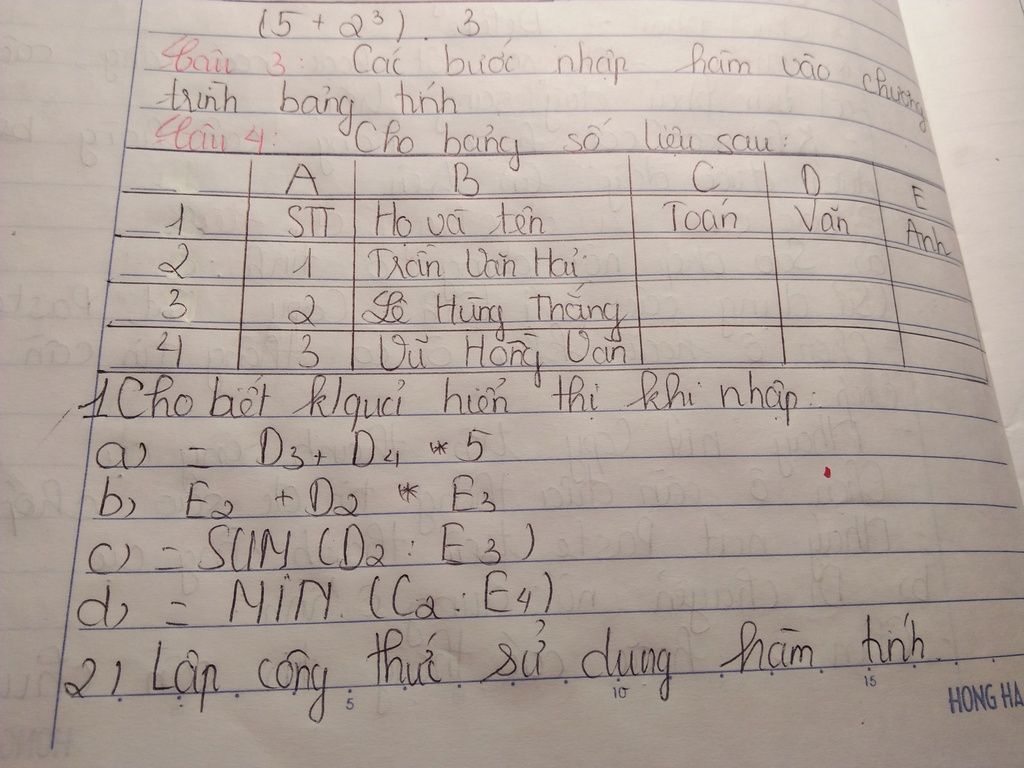 (5 + 2³). 3
Câu 3: Các bước nhập hàm vào chương
trình bảng tính
Câu 4: Cho bảng số liệu sau:
A B C D E
1 STT Họ và tên Toán Văn Anh
2 1 Trần Văn Hải
3 2 Lê Hùng Thắng
4 3 Vũ Hồng Vân
1 Cho biết k/quả hiển thị khi nhập:
a) = D3 + D4 * 5
b) E2 + D2 * E3
c) = SUM (D2 : E3)
d) = MiN. (C2 : E4)
2) Lập công thức sử dụng hàm tính
5 10 15
HONG HA